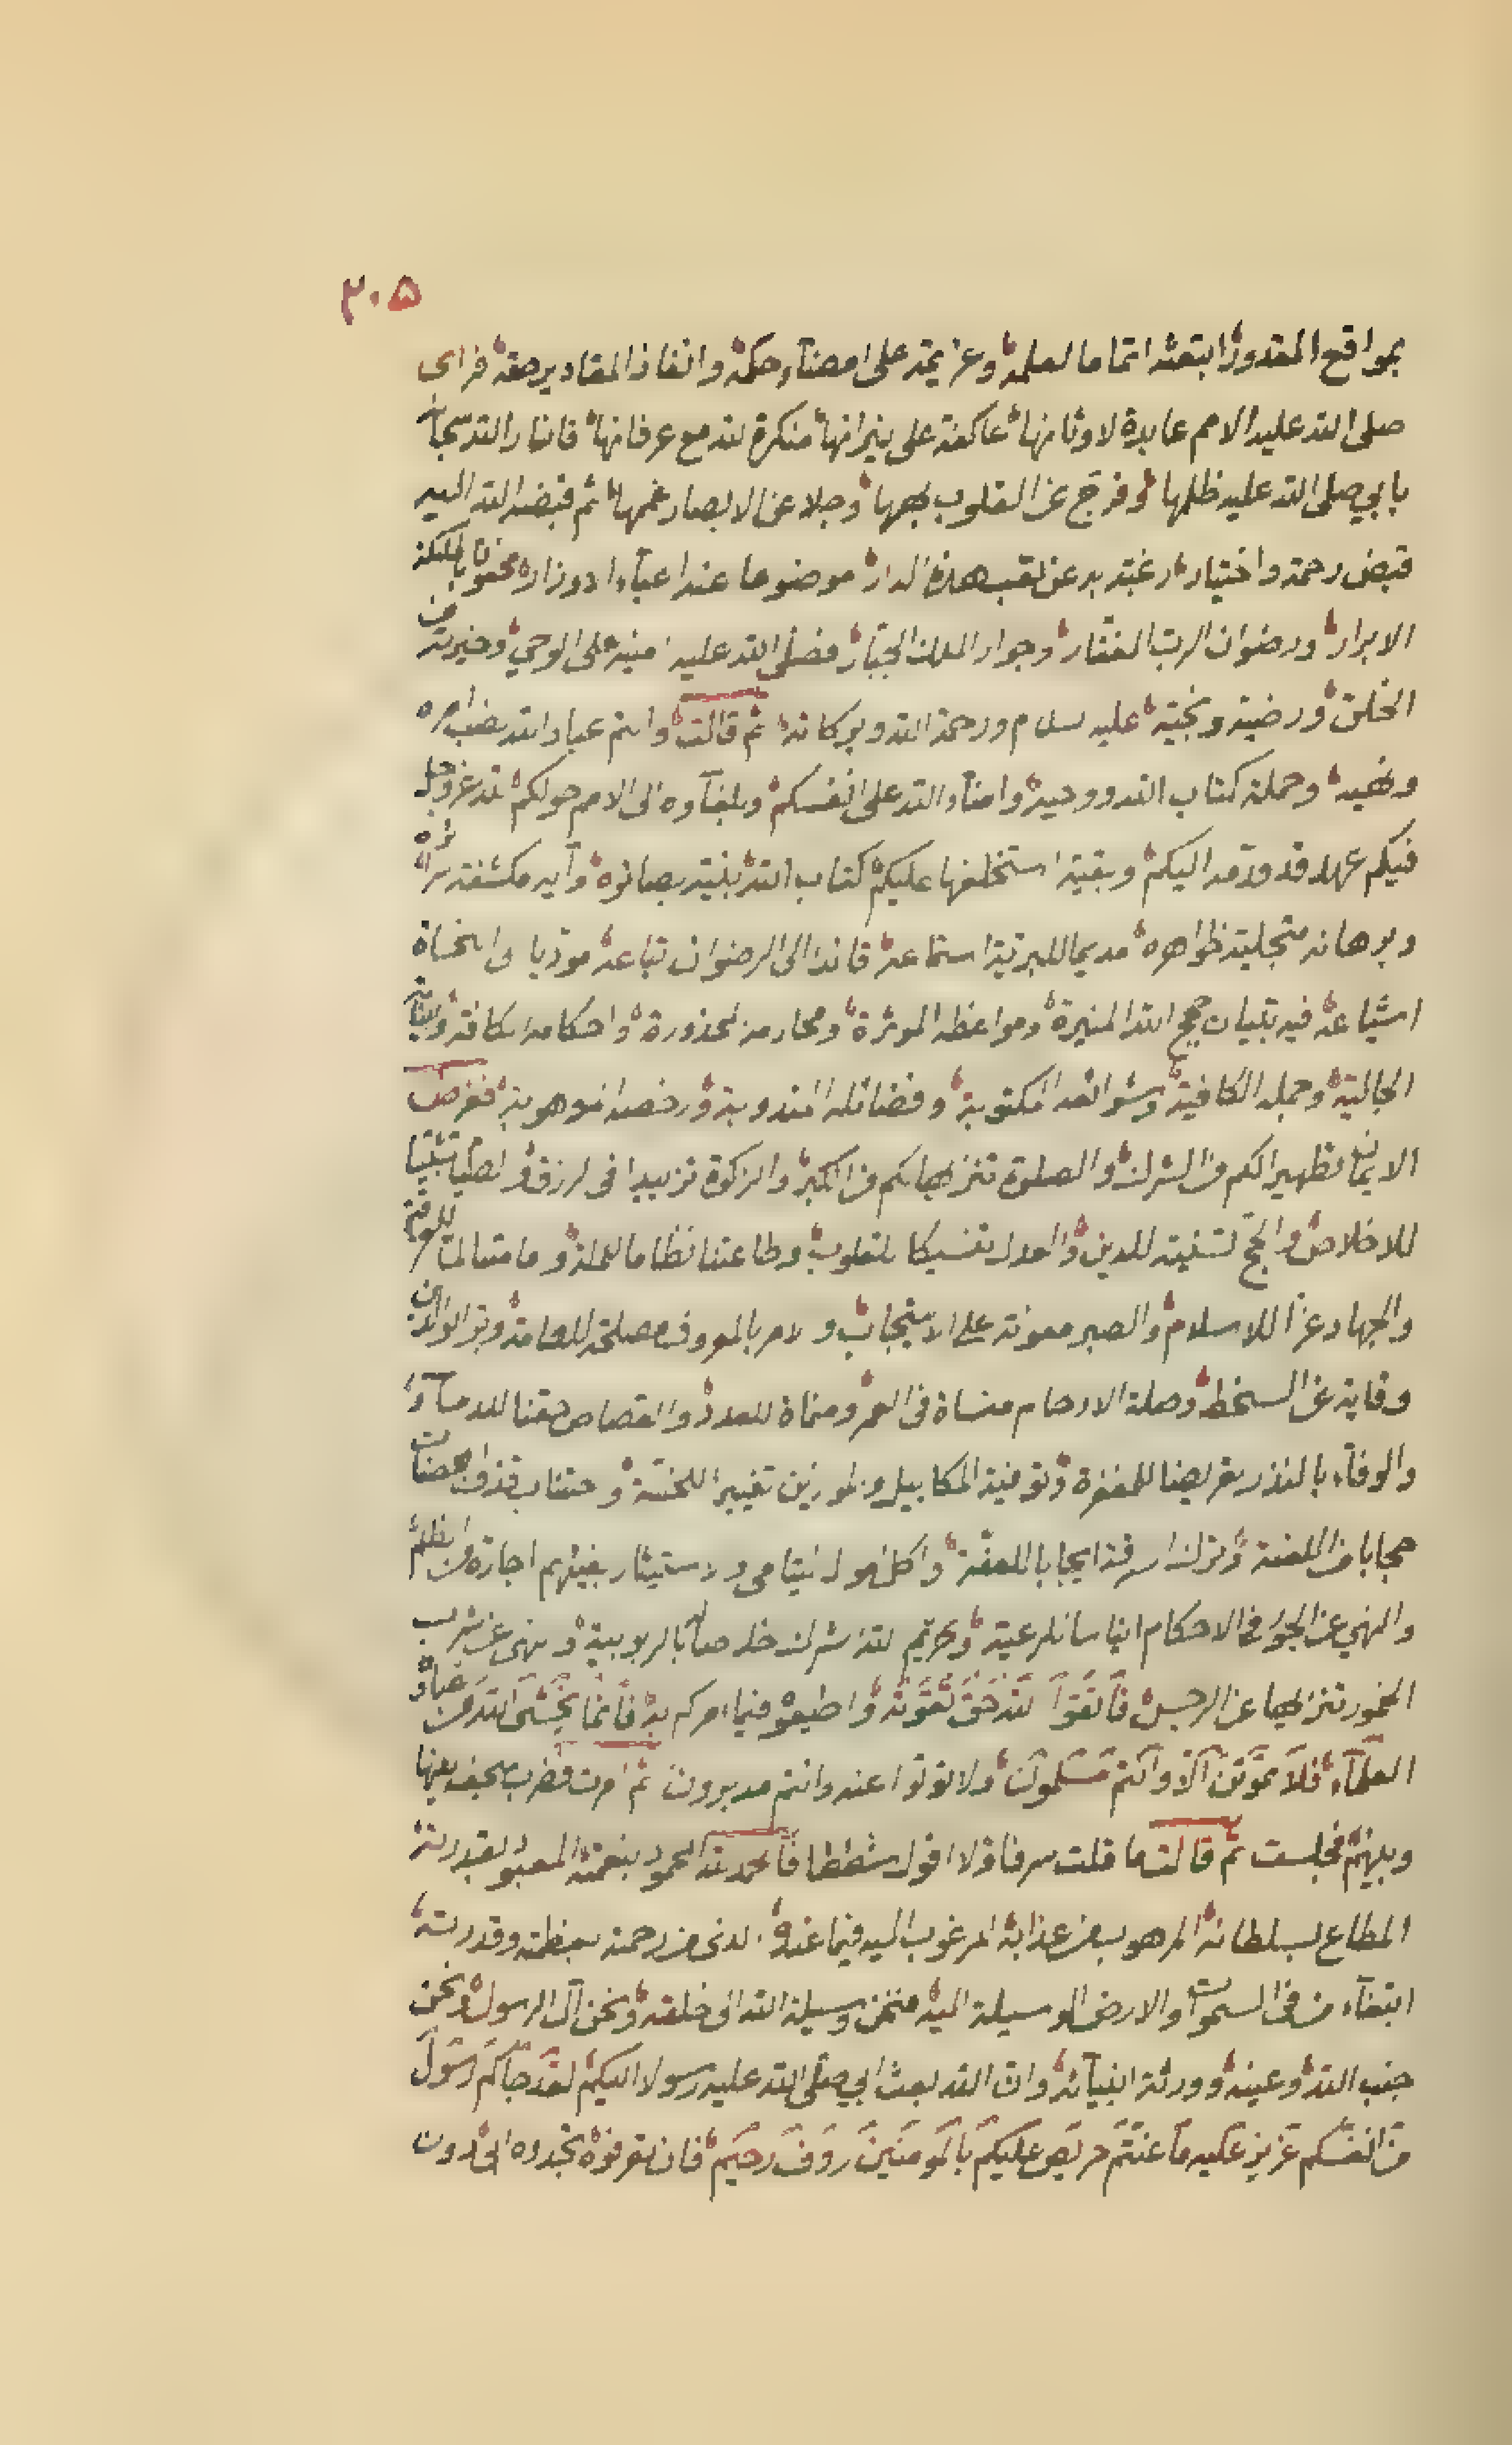 ٣٠٥
بمواقع المقدور ابتعثه اتماما لعلمه وعزيمة على امضآء حكمه وانفاذ المقادير حقه فراى
صلى الله عليه الامم عابدة لاوثانها عاكفة على نيرانها منكرة لله مع عرفانها فانار الله سبحانه
بابي صلى الله عليه ظلمها وفرج عن القلوب بهمها وجلا عن الابصار غمها ثم قبضه الله اليه
قبض رحمة واختيار رغبة به عن تعب هذه الدار موضوعا عنه اعبآء الاوزار محفوفا بالملئكة
الابرار ورضوان الرب الغفار وجوار الملك الجبار فصلى الله عليه امينه على الوحي وخيرته من
الخلق ورضيه ونجيه عليه السلام ورحمة الله وبركاته ثم قالت وانتم عباد الله نصب امره
ونهيه وحملة كتاب الله ووحيه وامنآء الله على انفسكم وبلغآوه الى الامم حولكم لله عز وجل
فيكم عهد قد قدمه اليكم وبقية استخلفها عليكم كتاب الله بينة بصائره وآيه مكشفة سرائره
وبرهانه متجلية ظواهره مديما للبرية استماعه قائدا الى الرضوان تباعه موديا الى النجاة
اشياعه فيه تبيان حجج الله المنيرة ومواعظه الموثرة ومحارمه المحذورة واحكامه الكافية وبيناته
الجالية وجمله الكافية وشرائعه المكتوبة وفضائله المندوبة ورخصه الموهوبة ففرض
الايمان تطهيرا لكم من الشرك والصلوة تنزيها لكم من الكبر والزكوة تزييدا فى الرزق والصيام تثبيتا
للاخلاص والحج تسنية للدين والعدل تنسيكا للقلوب وطاعتنا نظاما للملة وامامتنا لما للفرقة
والجهاد عزا للاسلام والصبر معونة على الاستيجاب والامر بالمعروف مصلحة للعامة وبر الوالدين
وقاية عن السخط وصلة الارحام منساة فى العمر ومنماة للعدد والقصاص حقنا للدمآء
والوفآء بالنذر تعريضا للمغفرة وتوفية المكاييل والموازين تغييرا للبخسة واجتناب قذف المحصنات
حجابا من اللعنة وترك السرقة ايجابا للعفة واكل اموال اليتامى والاستيثار بفيئهم اجارة من الظلم
والنهي عن الجور فى الاحكام ايناسا للرعية وتحريم لله الشرك اخلاصا له بالربوبية والنهى عن شرب
الخمور تنزيها عن الرجس فاتقوا الله حق تقوته واطيعوه فيما امركم به فانما يخشى الله من عباده
العلمآء فلا تموتن الا وانتم مسلمون ولا تولوا عنه وانتم مدبرون ثم امرت فضرب سجف بينها
وبينهم فجلست ثم قالت ما قلت سرفا ولا اقول شططا فالحمد لله المحمود بنعمته المعبود لقدرته
المطاع لسلطانه المرهوب من عذابه المرغوب اليه فيما عنده الدنى من رحمته بعظمته وقدرته
ابتغآء من فى السموات والارض الوسيلة اليه فنحن وسيلة الله الى خلقه ونحن آل الرسول ونحن
جنب الله وعينه وورثة انبيآئه وان الله بعث ابي صلى الله عليه رسولا اليكم لقد جاكم رسول
من انفسكم عزيز عليه ما عنتم حريص عليكم بالمومنين روف رحيم فان تعرفوه تجدوه ابى دون